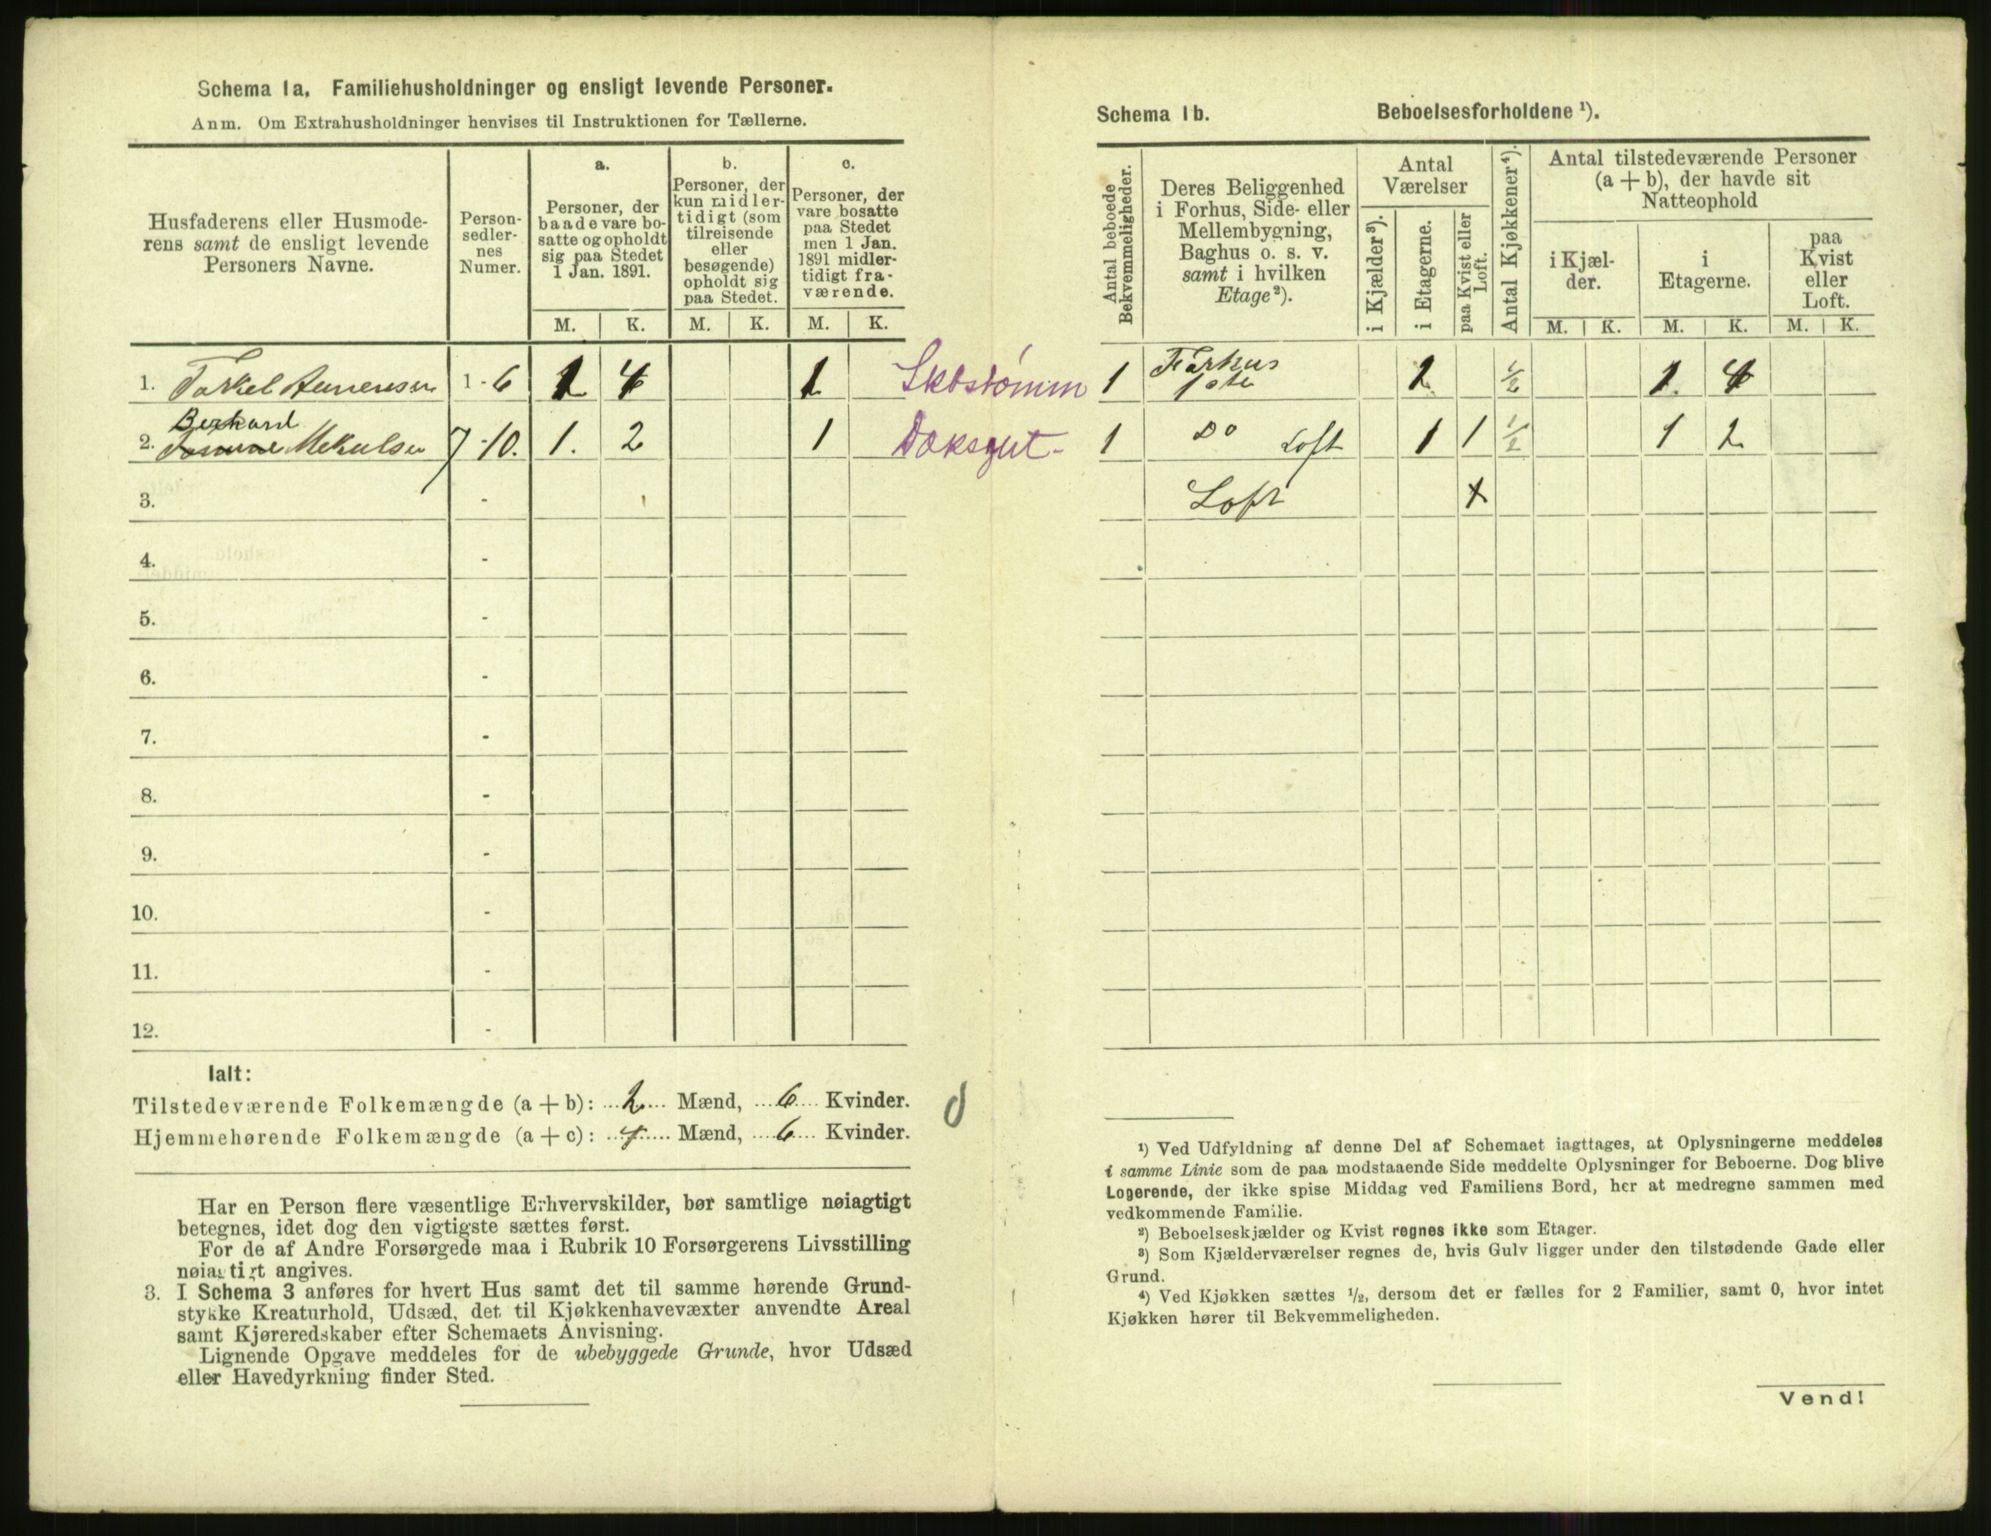 Schema 1a. Familiehusholdninger og ensligt levende Personer.
Anm. Om Extrahusholdninger henvises til Instruktionen for Tællerne.
Husfaderens eller Husmoderens samt de ensligt levende Personers Navne.
Personsedlernes Numer.
a.
Personer, der baade vare bosatte og opholdt sig paa Stedet 1 Jan. 1891.
b.
Personer, der kun midlertidigt (som tilreisende eller besøgende) opholdt sig paa Stedet.
c.
Personer, der vare bosatte paa Stedet men 1 Jan. 1891 midlertidigt fraværende.
M. K. M. K. M. K.
1. Torkel 1 - 6 1 4 1
2. Berhard Mekulsen 7 - 10. 1. 2 1
3. -
4. -
5. -
6. -
7. -
8. -
9. -
10. -
11. -
12. -
Ialt:
Tilstedeværende Folkemængde (a + b): 2 Mænd, 6 Kvinder.
Hjemmehørende Folkemængde (a + c): 4 Mænd, 6 Kvinder.
Har en Person flere væsentlige Erhvervskilder, bør samtlige nøiagtigt
betegnes, idet dog den vigtigste sættes først.
For de af Andre Forsørgede maa i Rubrik 10 Forsørgerens Livsstilling
nøiagtigt angives.
3. I Schema 3 anføres for hvert Hus samt det til samme hørende Grund-
stykke Kreaturhold, Udsæd, det til Kjøkkenhavevæxter anvendte Areal
samt Kjøreredskaber efter Schemaets Anvisning.
Lignende Opgave meddeles for de ubebyggede Grunde, hvor Udsæd
eller Havedyrkning finder Sted.
Schema 1b. Beboelsesforholdene ¹).
Antal beboede Bekvemmeligheder.
Deres Beliggenhed i Forhus, Side- eller Mellembygning, Baghus o. s. v. samt i hvilken Etage ²).
Antal Værelser
i Kjælder ³).
i Etagerne.
paa Kvist eller Loft.
Antal Kjøkkener ⁴).
Antal tilstedeværende Personer (a + b), der havde sit Natteophold
i Kjælder.
i Etagerne.
paa Kvist eller Loft.
M. K. M. K. M. K.
1 Forhus 1ste 1/2 1 4
1 Do Loft 1 1 1/2 1 2
Loft
¹) Ved Udfyldning af denne Del af Schemaet iagttages, at Oplysningerne meddeles
i samme Linie som de paa modstaaende Side meddelte Oplysninger for Beboerne. Dog blive
Logerende, der ikke spise Middag ved Familiens Bord, her at medregne sammen med
vedkommende Familie.
²) Beboelseskjælder og Kvist regnes ikke som Etager.
³) Som Kjælderværelser regnes de, hvis Gulv ligger under den tilstødende Gade eller
Grund.
⁴) Ved Kjøkken sættes 1/2, dersom det er fælles for 2 Familier, samt 0, hvor intet
Kjøkken hører til Bekvemmeligheden.
Vend!